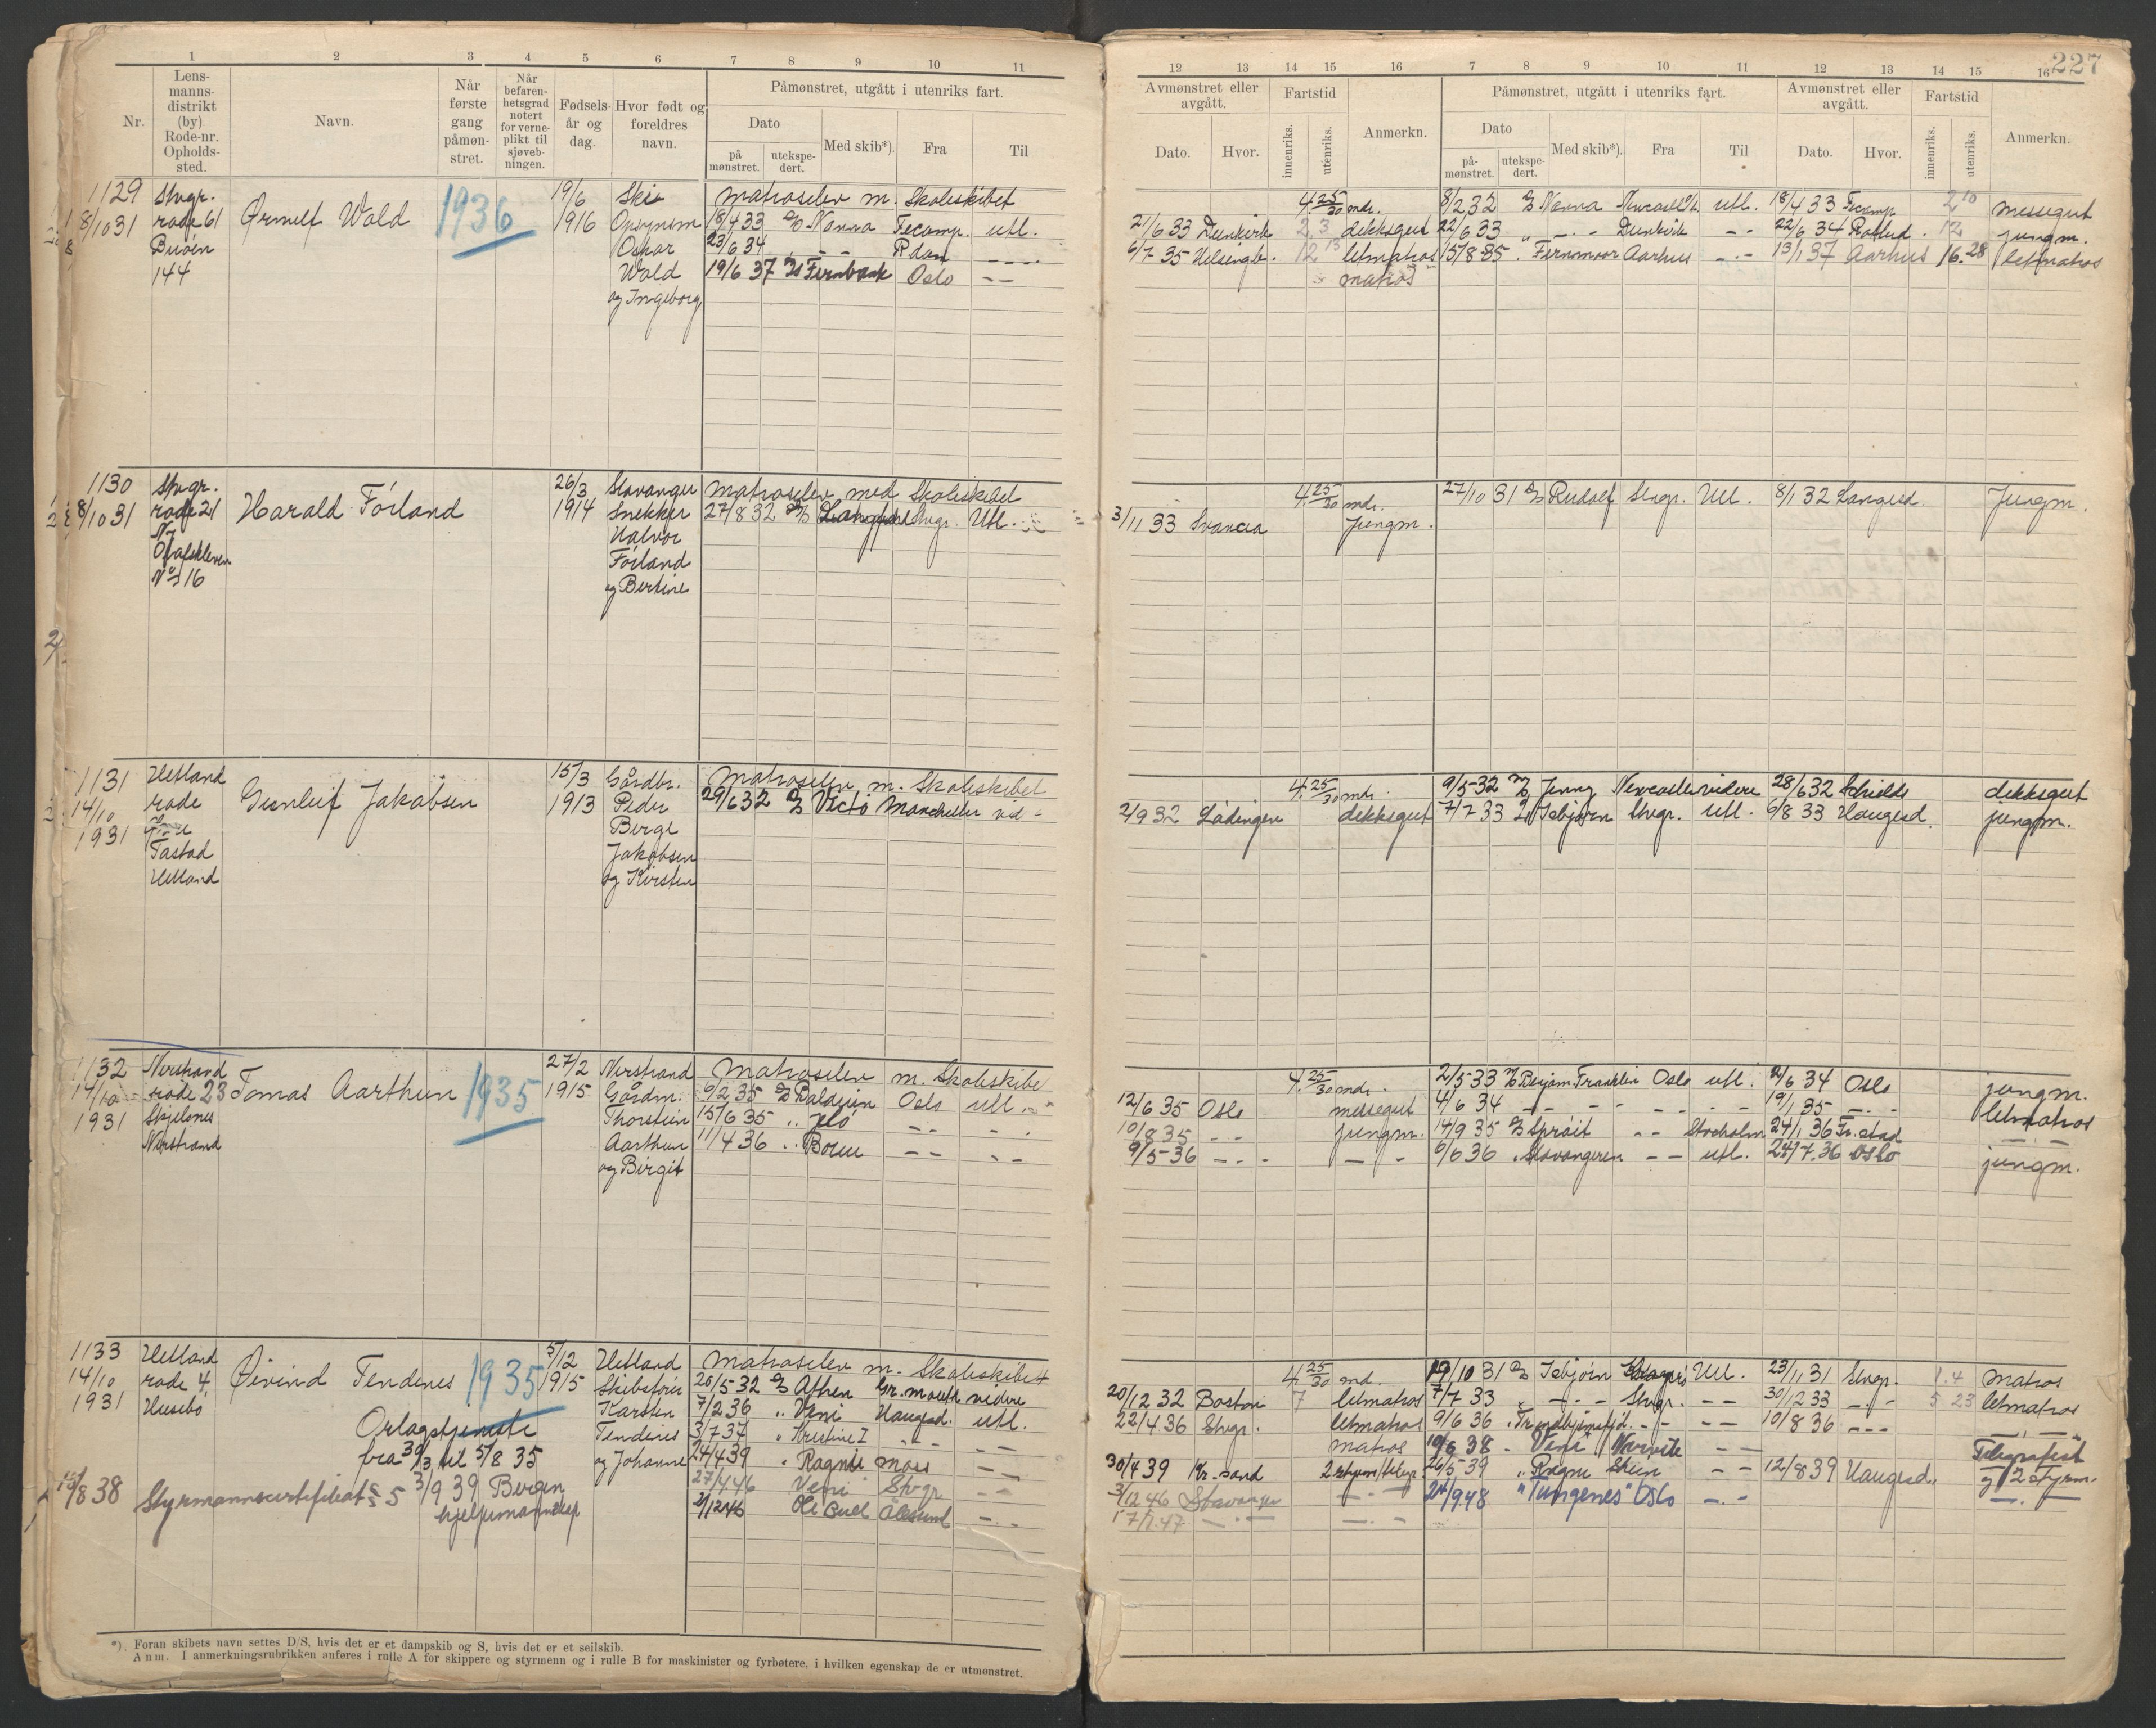 227
1 2 3 4 5 6 7 8 9 10 11
Nr.
Lens-
manns-
distrikt
(by)
Rode-nr.
Opholds-
sted.
Navn.
Når
første
gang
påmøn-
stret.
Når
befaren-
hetsgrad
notert
for verne-
plikt til
sjøveb-
ningen.
Fødsels-
år og
dag.
Hvor født og
foreldres
navn.
Påmønstret, utgått i utenriks fart.
Dato
på
mønstret.
utekspe-
dert.
Med skib*).
Fra
Til
12 13 14 15 16 7 8 9 10 11 12 13 14 15 16
Avmønstret eller
avgått.
Dato.
Hvor.
Fartstid
innenriks.
utenriks.
Anmerkn.
Påmønstret, utgått i utenriks fart.
Dato
på-
mønstret.
utekspe-
dert.
Med skib*).
Fra
Til
Avmønstret eller
avgått.
Dato.
Hvor.
Fartstid
innenriks.
utenriks.
Anmerkn.
1129
8/10 31
Stvgr.
rode 61
Buøen
144
Ørnulf Wold
1936
19/6
1916
Ski
Opsynsm
Oskar
Wold
og Ingeborg
Matroselev m. Skoleskibet
18/4 33 D/S Nanna Fecamp. utl.
23/6 34 - - R.dam - - -
19/6 37 M/S Fernbank Oslo - -
4 25/30 mdr. 8/2 32 D/S Nanna Newcastle utl. 18/4 33 Fecamp 2 10 messegut
21/6 33 Dunkirk 2 3 dekksgut 22/6 33 " - - Dunkirk - - 22/6 34 Rotterd. 12 jungm.
6/7 35 Helsingb. 12 13 letmatros 15/8 35 . Fernmoor Aarhus - - 13/1 37 Aarhus 16.28 letmatros
matros
1130
8/10 31
Stvgr.
rode 21
Ny
Olafskleven
No 16
Harald Föiland
26/3
1914
Stavanger
Snekker
Halvor
Föiland
og Bertine
Matroselev med Skoleskibet
27/8 32 D/S Stvgr. Utl.
4 25/30 mdr. 27/10 31 D/S Rudolf Stvgr. Utl. 8/1 32 Langesd. Jungm.
3/11 33 Svancia Jungm.
1131
14/10
1931
Hetland
rode
Tastad
Hetland
Gunleif Jakobsen
15/3
1913
Gårdbr.
Peder
Berge
Jakobsen
og Kirsten
Matroselev m. Skoleskibet
29/6 32 D/S Victo Manchester vid -
4 25/30 mdr. 9/5-32 Jenny Newcastle videre 28/6 32 Schields dekksgut
2/9 32 Lödingen dekksgut 7/7 33 D/S Isbjørn Stvgr. utl. 6/8 33 Haugesd. jungm.
1132
14/10
1931
Nerstrand
rode 23
Skjelones
Nerstrand
Tomas Aarthun
1935
27/2
1915
Nerstrand
Gårdm.
Thorstein
Aarthun
og Birgit
Matroselev m. Skoleskibe
9/2 35 D/S Balduin Oslo utl.
15/6 35 .. Jelö - - - -
11/4 36 .. Boreu - - - -
4 25/30 mdr. 2/5-33 Benjam Franklin Oslo utl. 2/6 34 Oslo jungm.
12/6 35 Oslo messegut 4/6 34 - - - - - - 19/1 35 - - letmatros
10/8 35 - - jungm. 14/9 35 D/S Spröit - - Stocholm 24/1 36 Fr.stad - -
9/5-36 - - - - - 6/6 36 . Stavangeren - - utl. 24/7.36 Oslo jungm.
1133
14/10
1931
Hetland
rode 4
Husebö
Öivind Tendenes
1935
Orlogstjeneste
fra 30/3 til 5/8 35
10/8 38 Styrmannscertifikat 5 3/9 39 Bergen
hjelpemannskap
5/12
1915
Hetland
Skibsförer
Karsten
Tendenes
og Johanne
Matroselev m. Skoleskibet
20/5 32 D/S Athen Gr.mouth videre
7/2 36 .. Veni Haugesd. utl.
3/7 37 " Kristine I - - - -
24/4 39 . Ragni Moss - -
27/4.46 Veni Stvgr - -
2/12 46 Ole Bull Ålesund - -
4 25/30 md. 19/10 31 D/S Isbjörn Utl. 23/1 31 Stvgr. 1.4 matros
20/12 32 Boston 7 letmatros 7/7 33 " - - Stvgr. - - 30/12 33 - - 5 23 letmatros
22/4 36 Stvgr. letmatros 9/6 36 " Trondhjemsfjd. - - - - 10/8 36 - - - - -
matros 10/6 38 - Veni Narvik - - Telegrafist
30/4 39 Kr.sand 2 styrm/telegr. 26/5 39 " Ragni Skien - - 12/8 39 Haugesd. og 2 styrm.
3/12 46 Stavanger - - 24/9.48 "Tungenes" Oslo - - - -
17/1.47 - - - -
*). Foran skibets navn settes D/S, hvis det er et dampskib og S, hvis det er et seilskib.
Anm. I anmerkningsrubrikken anføres i rulle A for skippere og styrmenn og i rulle B for maskinister og fyrbøtere, i hvilken egenskap de er utmønstret.